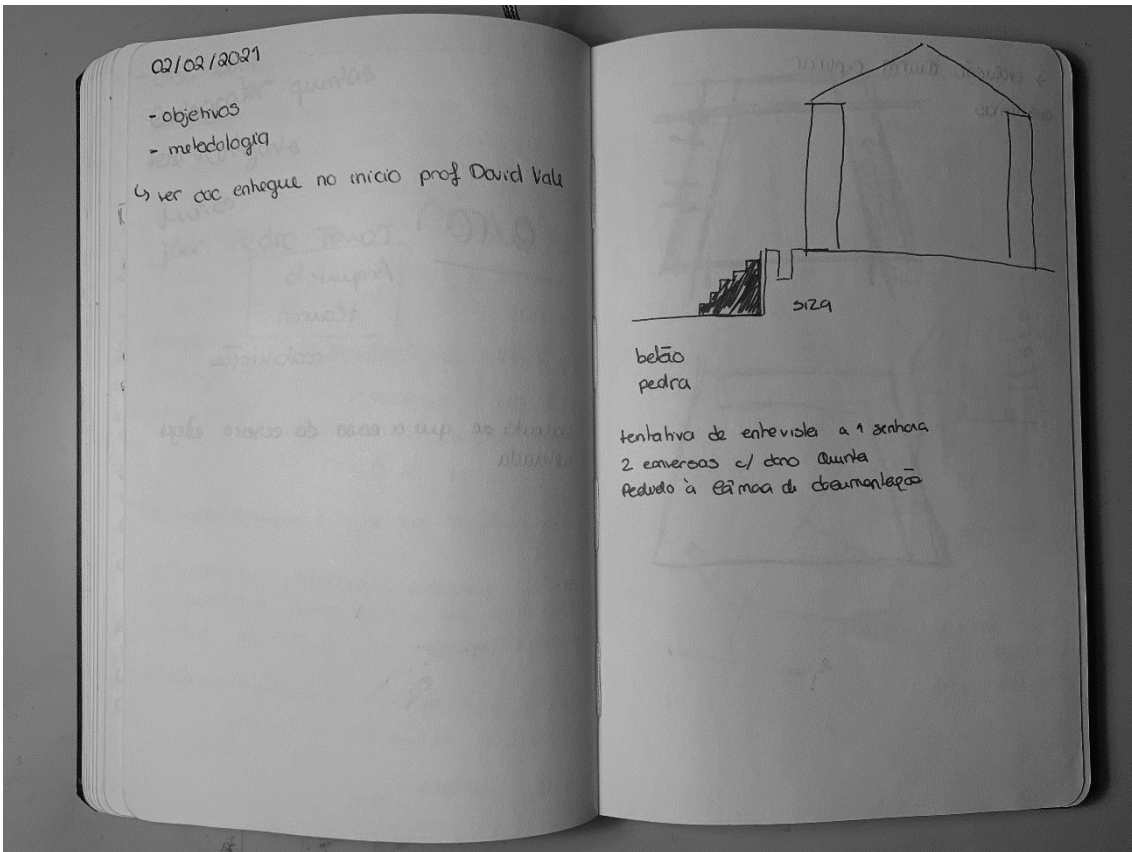 02/02/2021
- objetivos
- metodologia
↳ ver doc entregue no inicio prof David Vale
siza
betão
pedra
tentativa de entrevista a 1 senhora
2 conversas c/ dono Quinta
Pedido à Câmara de documentação